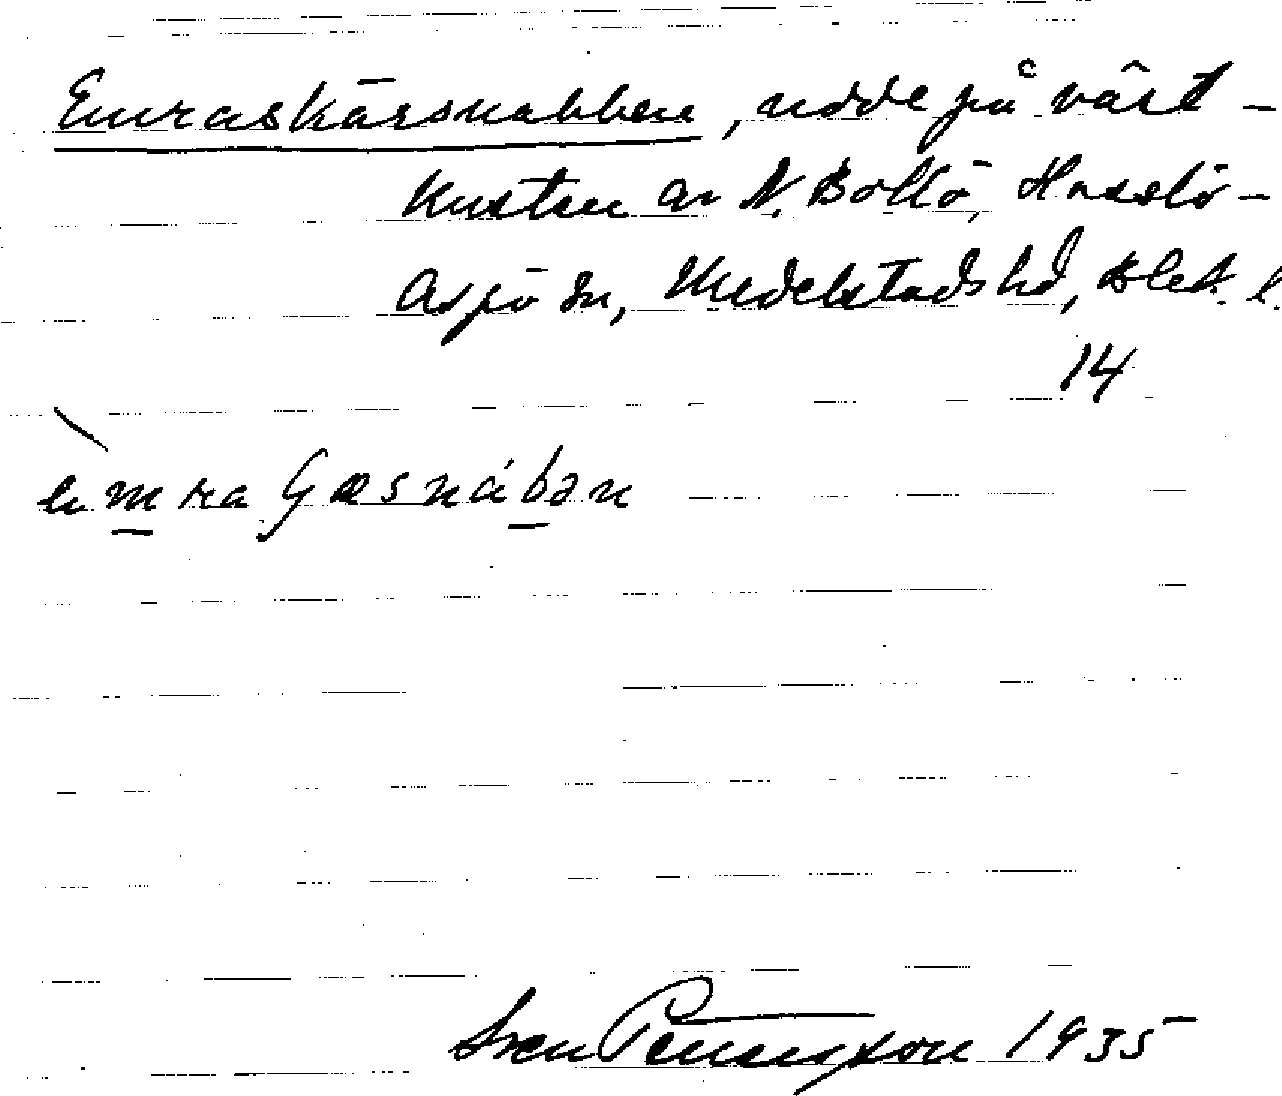 Emraskärsnabben, udde på väst-
kusten av N. Bokö, Hasslö-
Aspö sn, Medelstads hd, Blek. l.
14
Sven Benson 1935